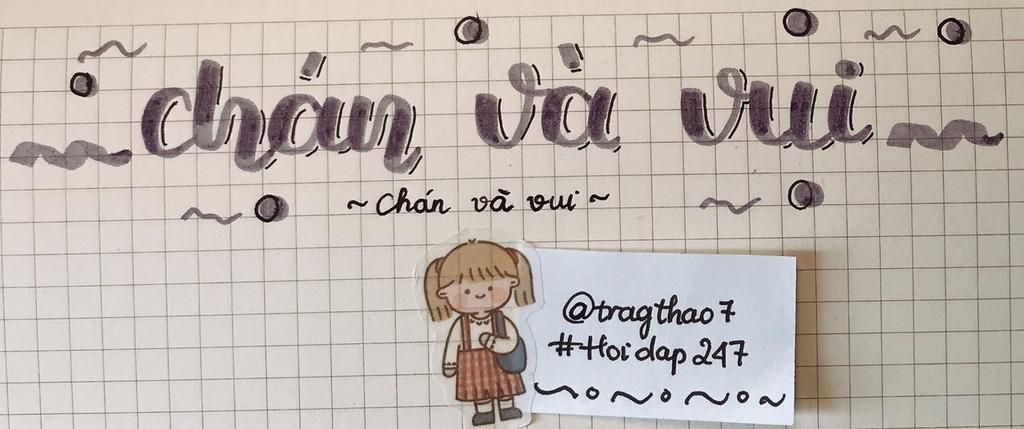 chán và vui
~ chán và vui ~
@tragthao7
#Hoidap247